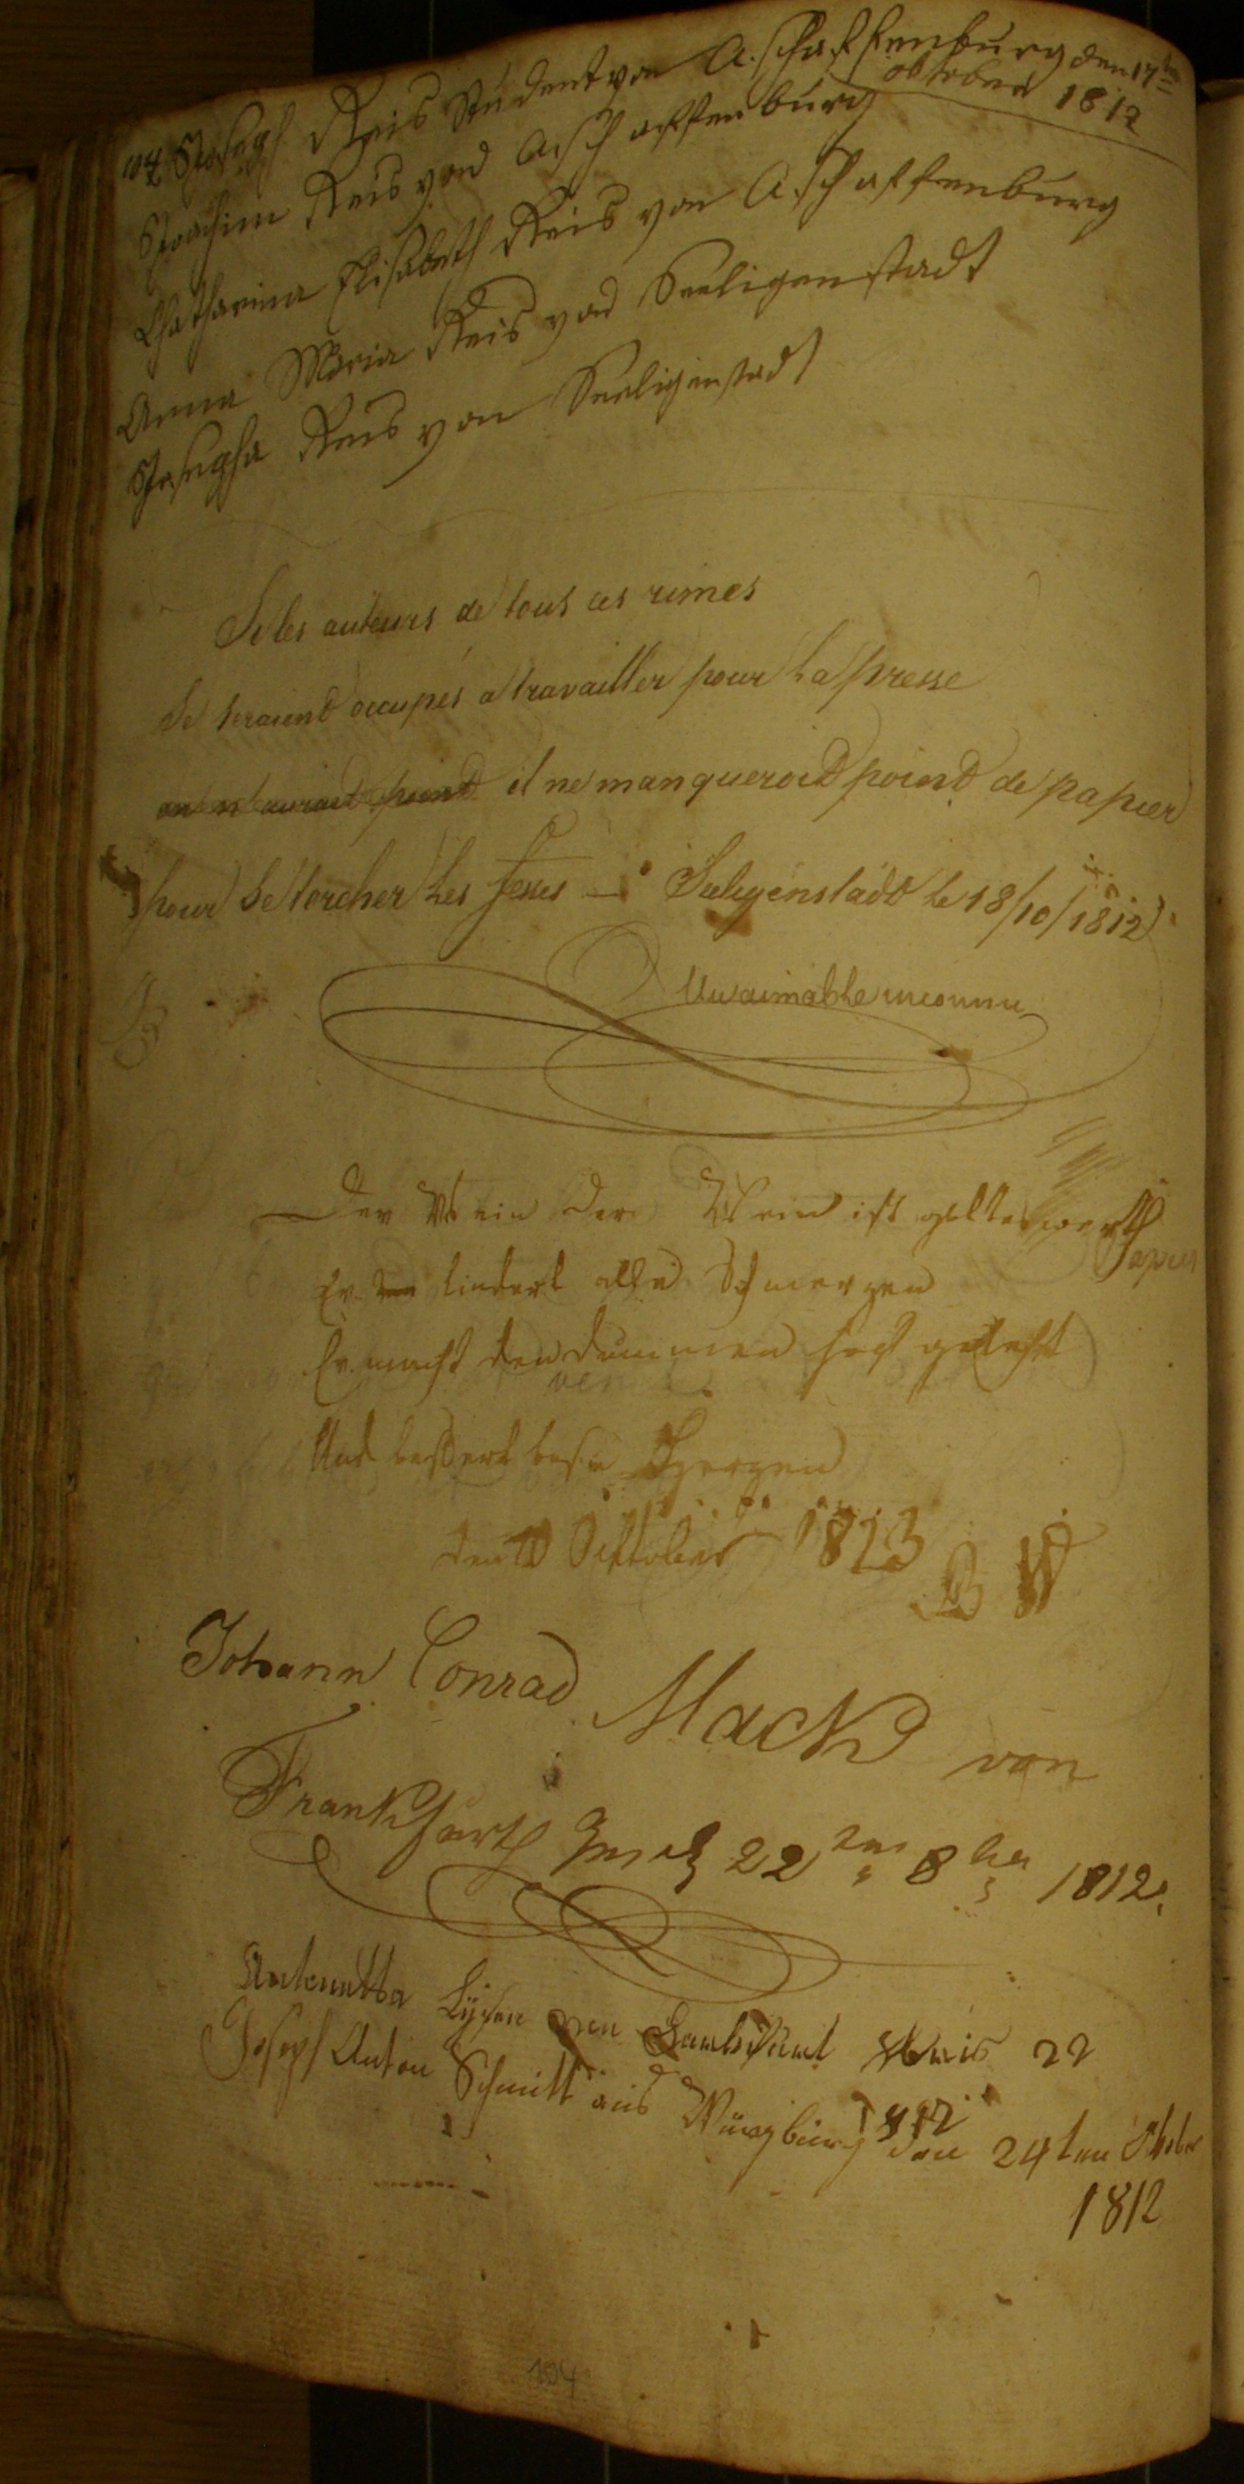 Joseph Reis Student von Aschaffenburg den 17ten
oktober 1812
Joachim Reis von Aschaffenburg
Chatharina Elisabeth Reis von Aschaffenburg
Anna Maria Reis von Seeligenstadt
Josepha Reis von Seeligenstadt
Si les auteurs de tous ces rimes
Se seraient occupés a travailler pour La presse
on n'auroit point il ne manqueroit point de papier
pour Se torcher Les fesses — Seligenstadt le 18/10/1812
Un aimable inconnu
Der Wein der Wein ist goltes werth
Er lindert alle Schmerzen
Er macht den dummen hoch gelehrt
Und bessert bose Herzen
den Ocktober 1813
B W
Johann Conrad Mack von
Frankfurth 22ten 8ber 1812
Antonetta von 22
1812
Joseph Anton Schmitt aus Würzburg den 24ten Oktober
1812
104